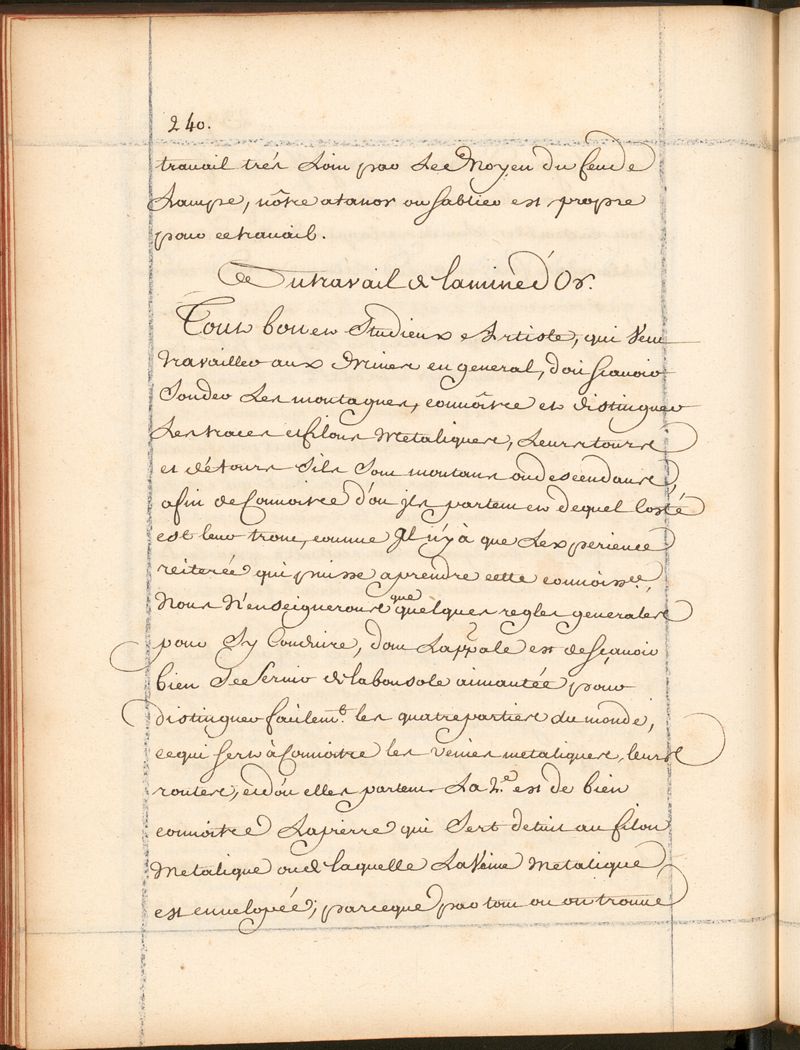 240.
travail trés Loin par Le Moyen du feu de
Lampe, nôtre atanor ou sablier est propre
pour ce travail.
Du travail de la mine d'Or.
Tout bon et Studieux Artiste, qui veut
travailler aux Mines en general, doit scavoir
Sonder Les montagnes, connôitre et distinguer
Les traces et filons Metaliques, Leurs tours
et détours s'ils sont montans ou descendans,
afin de Connoitre d'ou jls partent et de quel Costé
est leur tronc, comme Jl n'y à que Lexperience
reiterée qui puisse aprendre cette connoiss.ce
Nous N'enseignerons que quelques regles generales
pour s'y Conduire, dont La pp.ale est de scavoir
bien se servir de la bousole aimantée pour
distinguer facilem.t les quatre parties du monde,
ce qui sert à Connoitre les veines metaliques, leurs
routes, et d'ou elles partent. La 2.e est de bien
connoitre La pierre qui sert de toit au filon
Metalique ou de laquelle La Veine Metalique
est envelopée; parceque par tout ou on trouve